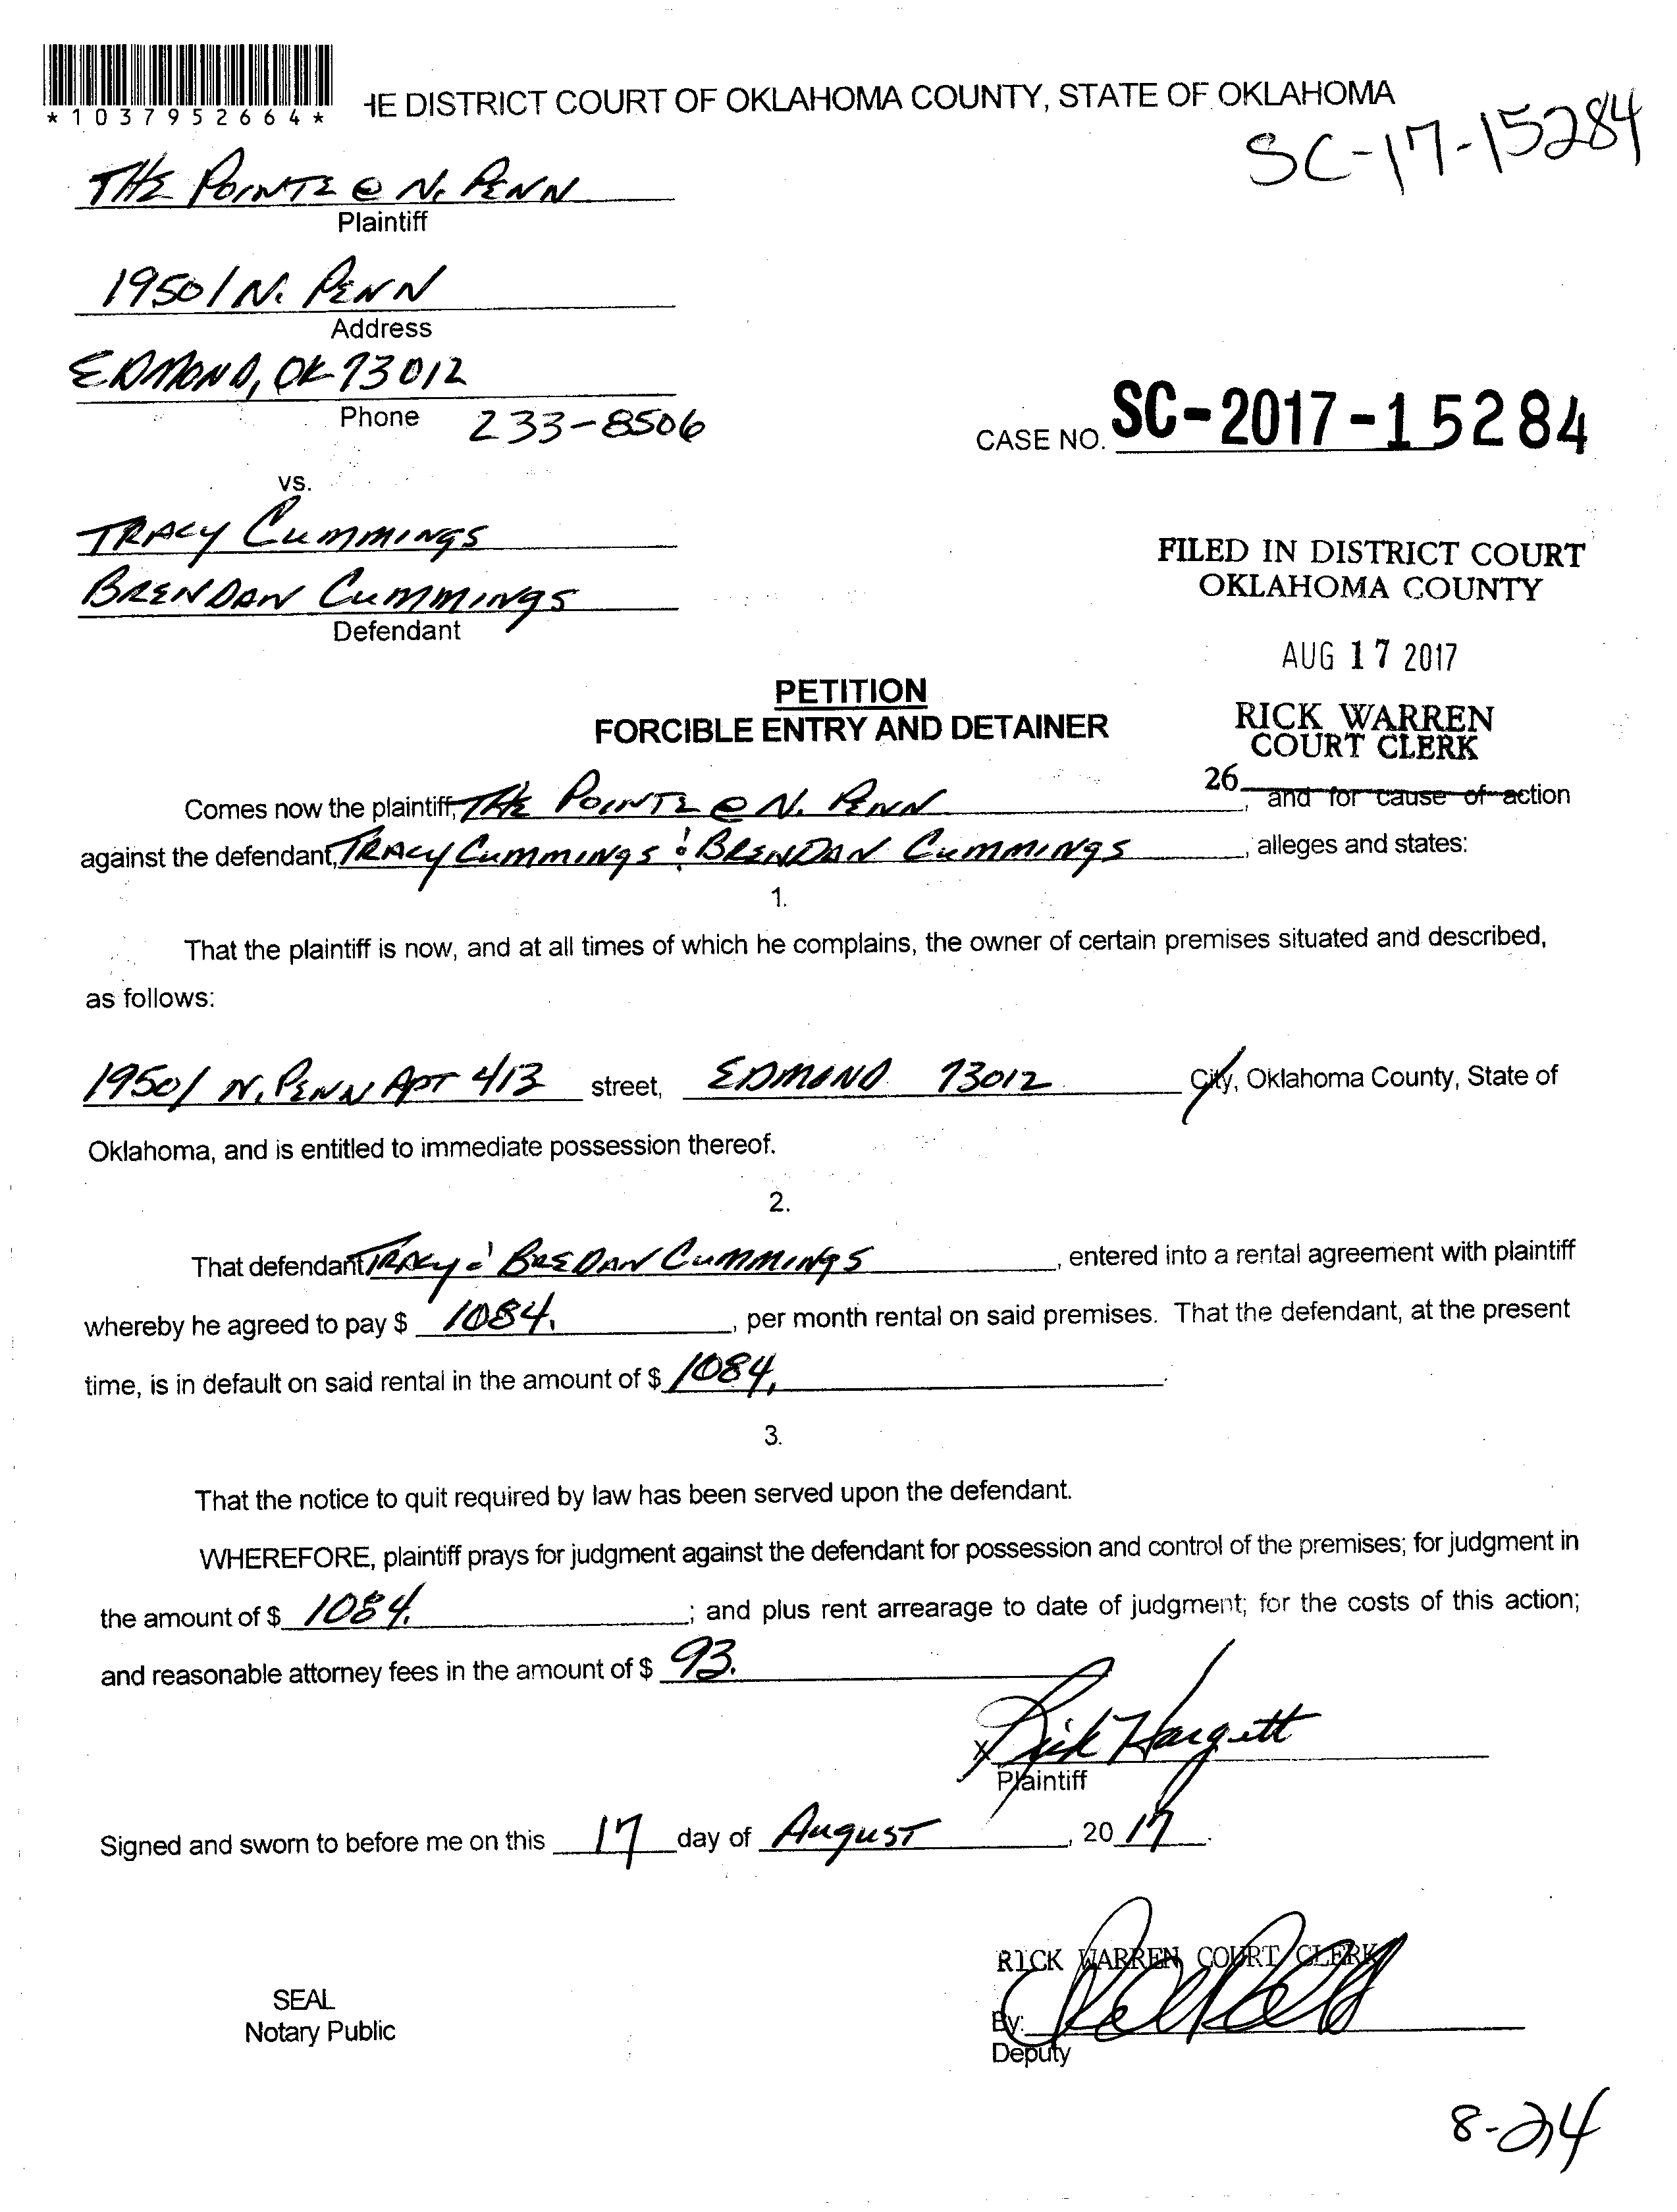 *1037952664*
HE DISTRICT COURT OF OKLAHOMA COUNTY, STATE OF OKLAHOMA
SC-17-15284
THE POINTE @ N. PENN
Plaintiff
19501 N. PENN
Address
EDMOND, OK 73012
Phone 233-8506
CASE NO. SC-2017-15284
vs.
TRACY CUMMINGS
BRENDAN CUMMINGS
Defendant
FILED IN DISTRICT COURT
OKLAHOMA COUNTY
AUG 17 2017
RICK WARREN
COURT CLERK
26
PETITION
FORCIBLE ENTRY AND DETAINER
Comes now the plaintiff, THE POINTE @ N. PENN, and for cause of action
against the defendant, TRACY CUMMINGS & BRENDAN CUMMINGS, alleges and states:
1.
That the plaintiff is now, and at all times of which he complains, the owner of certain premises situated and described,
as follows:
19501 N. PENN APT 413 street, EDMOND 73012 City, Oklahoma County, State of
Oklahoma, and is entitled to immediate possession thereof.
2.
That defendant TRACY & BREDAN CUMMINGS, entered into a rental agreement with plaintiff
whereby he agreed to pay $ 1084., per month rental on said premises. That the defendant, at the present
time, is in default on said rental in the amount of $ 1084.
3.
That the notice to quit required by law has been served upon the defendant.
WHEREFORE, plaintiff prays for judgment against the defendant for possession and control of the premises; for judgment in
the amount of $ 1084.; and plus rent arrearage to date of judgment; for the costs of this action;
and reasonable attorney fees in the amount of $ 93.
X Rick Hargett
Plaintiff
Signed and sworn to before me on this 17 day of August, 20 17.
RICK WARREN COURT CLERK
SEAL
Notary Public
By:
Deputy
8-24